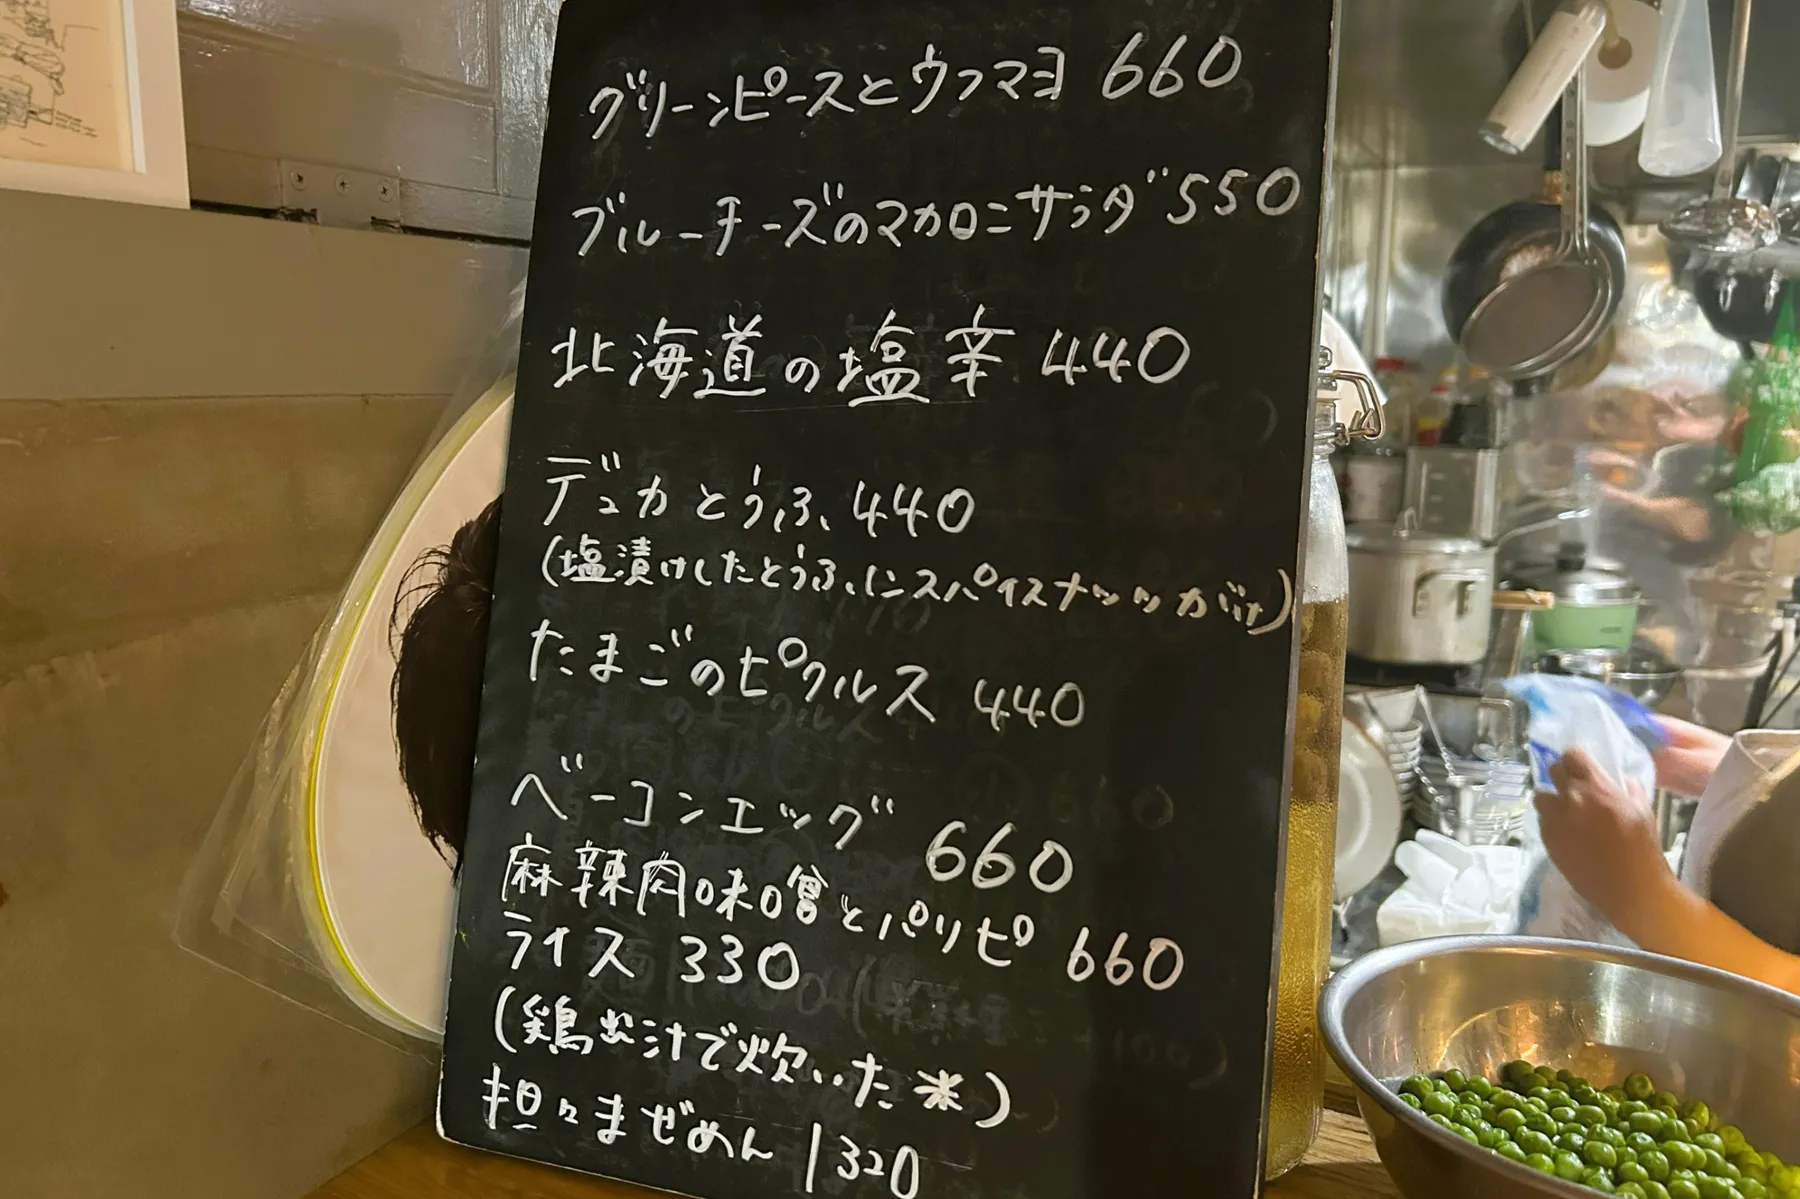 グリーンピースとウフマヨ 660
ブルーチーズのマカロニサラダ 550
北海道の塩辛 440
デュカとうふ、440
(塩漬けしたとうふ、インスパイスナッツがけ)
たまごのピクルス 440
ベーコンエッグ 660
麻辣肉味噌とパリピ 660
ライス 330
(鶏出汁で炊いた米)
担々まぜめん 1320